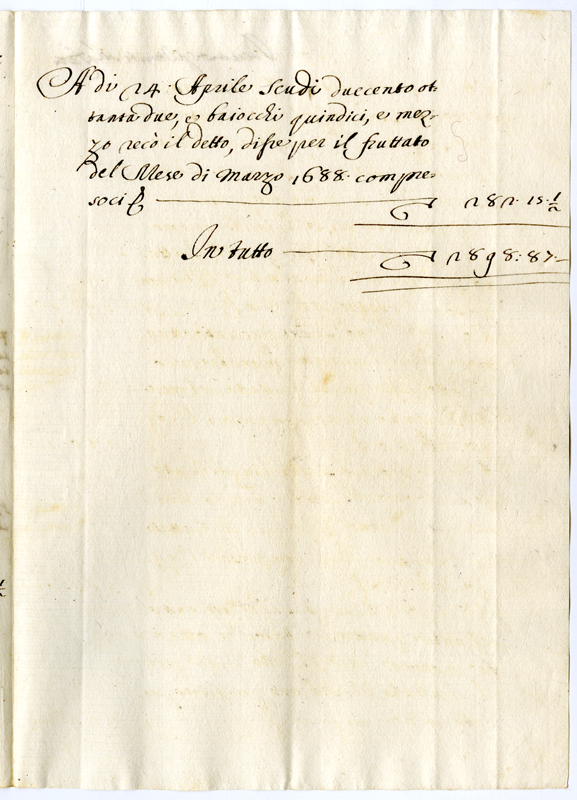 A di 24. Aprile scudi duecento ot=
tanta due, e baiocchi quindici, e mez=
zo recò il detto, disse per il fruttato
del Mese di Marzo 1688. compre=
soci 282. 15. ½
In tutto 2898: 87. –